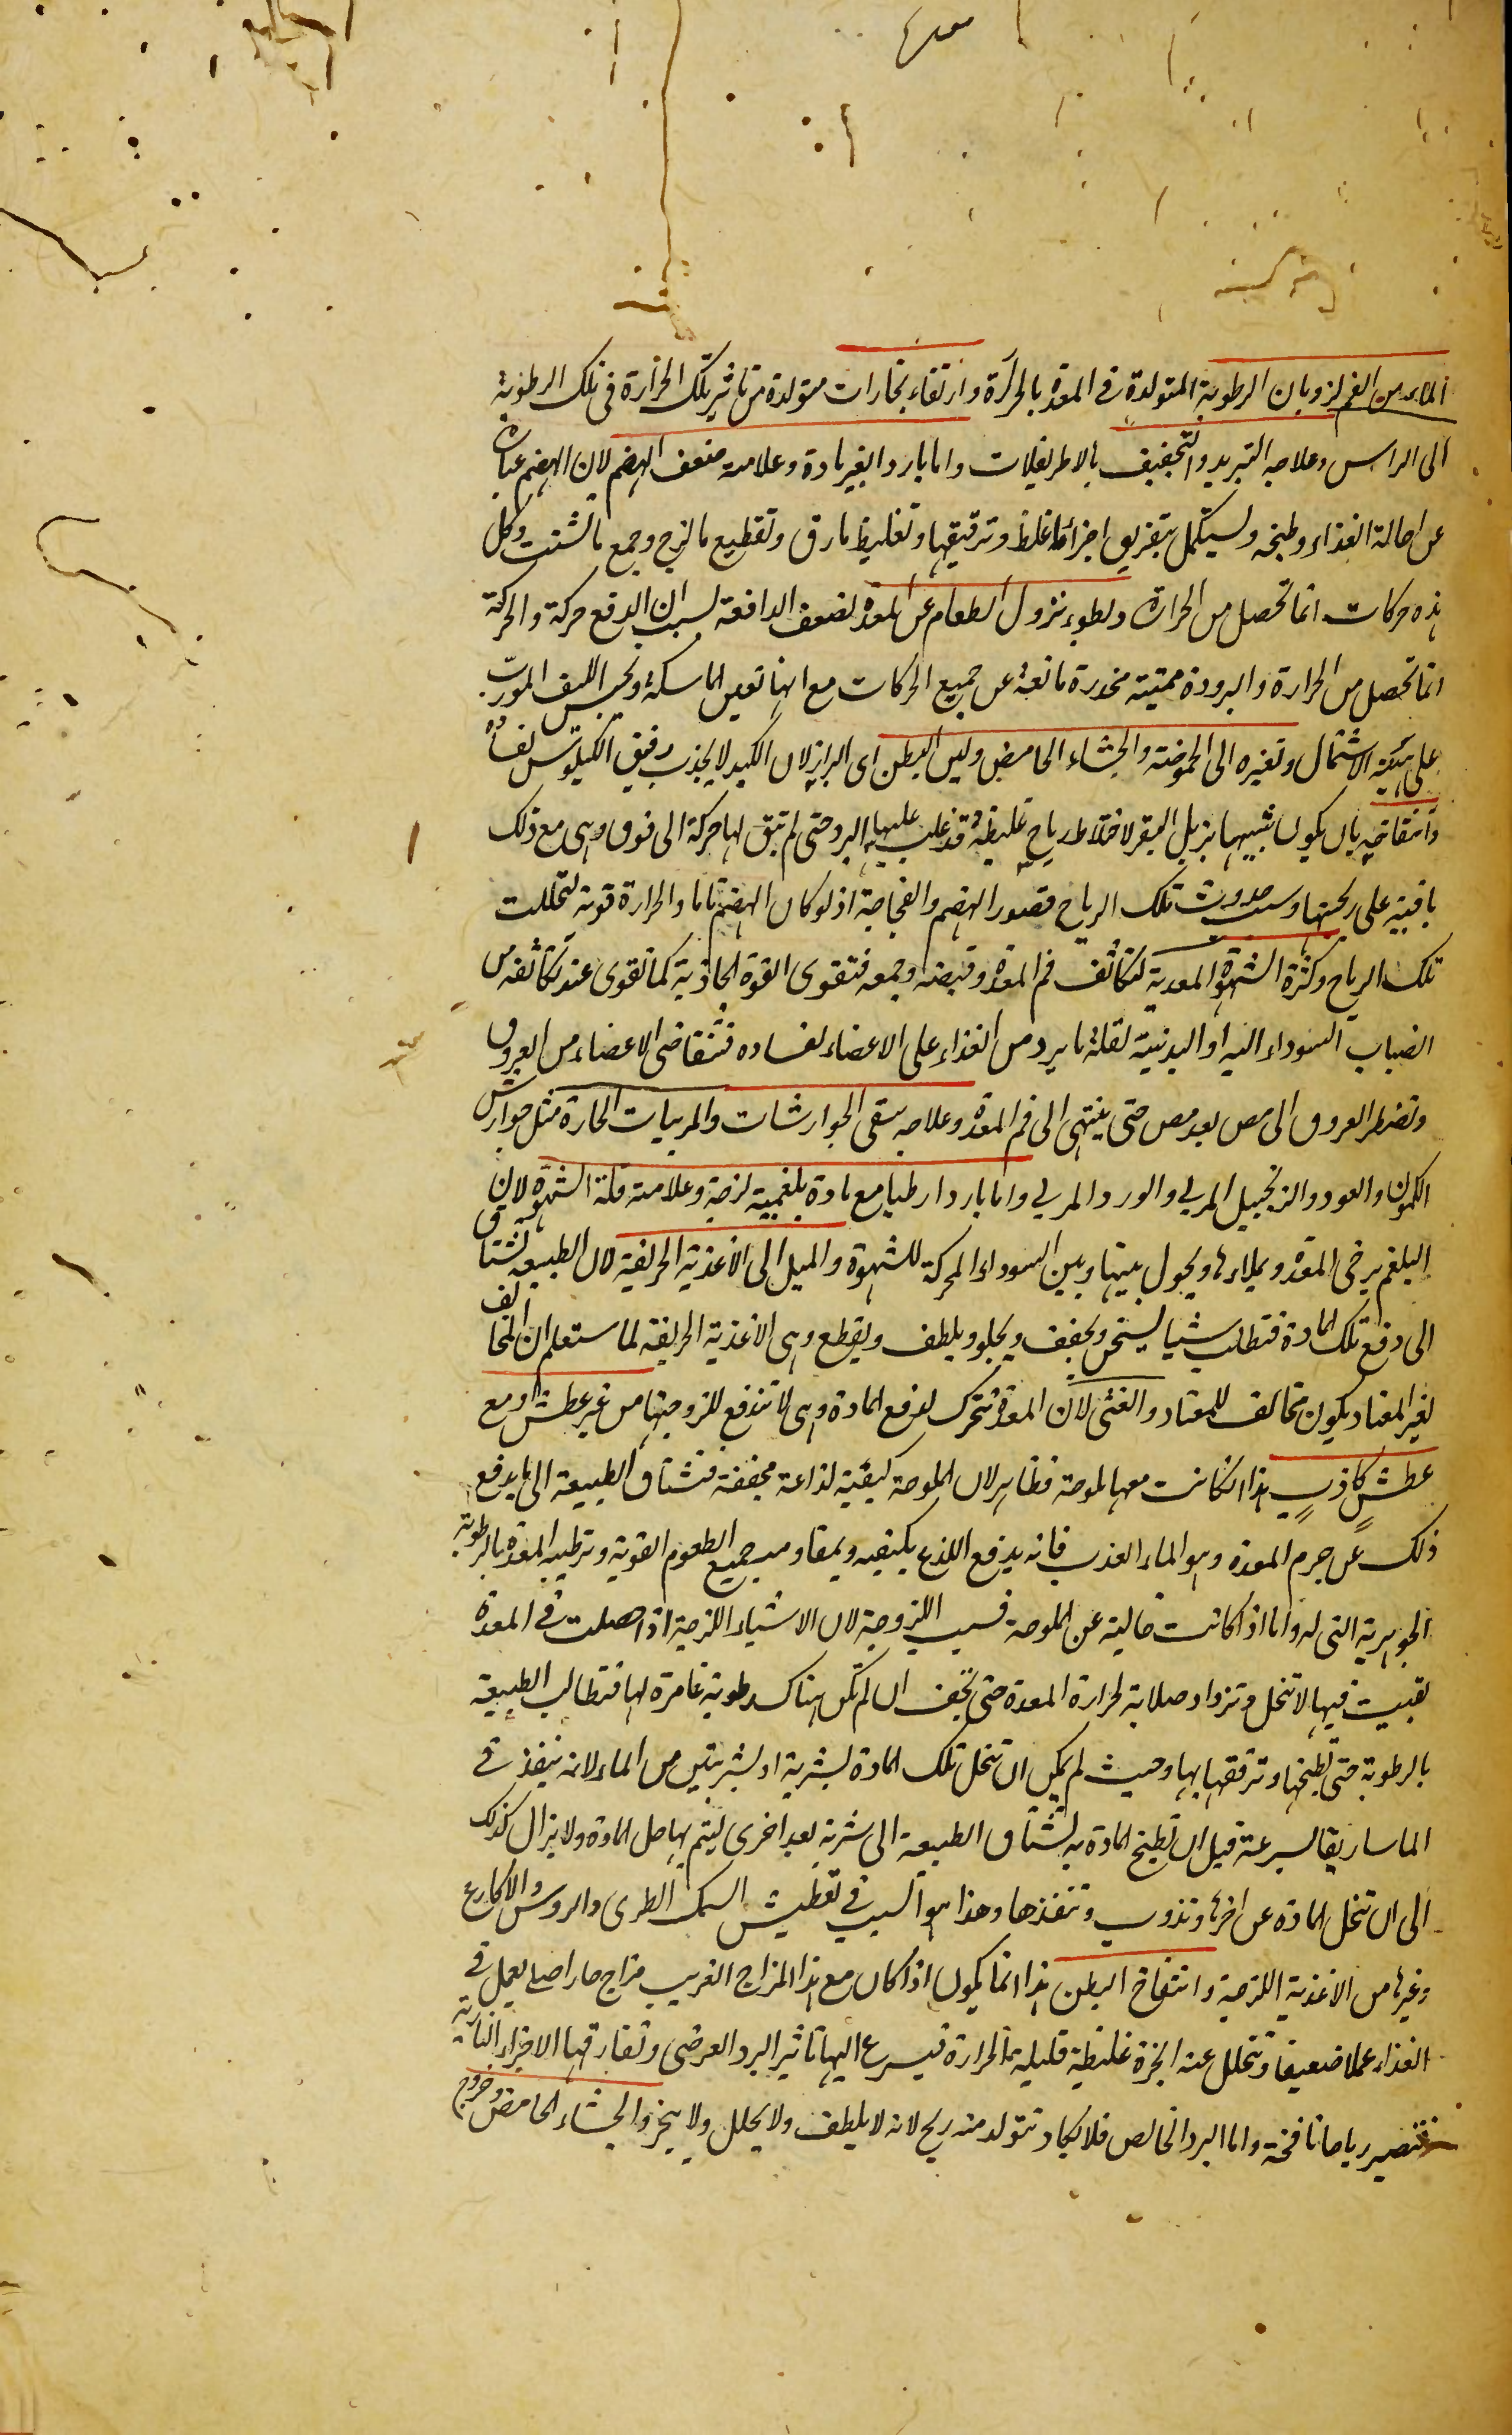 الماء من الفم لذوبان الرطوبة المتولدة فى المعدة بالحرارة وارتفاء بخارات متولدة من تاثير تلك الحرارة فى تلك الرطوبة
الى الراس وعلاجه التبريد والتجفيف بالاطريفلات واما بارد بغير مادة وعلامته ضعف الهضم لان الهضم عبارة
عن احالة الغذاء وطبخه ويستكمل بتفريق اجزاء ما غلظ وترقيقها وتغليظ ما رق وتقطيع ما لزج وجمع ما تشتت وكل
هذه حركات انما تحصل من الحرارة وبطوء نزول الطعام عن المعدة لضعف الدافعة بسبب ان الدفع حركة والحركة
انما تحصل من الحرارة والبرودة مميتة مخدرة مانعة عن جميع الحركات مع انها تعين الماسكة وتحبس الليف المورب
على هيئة الاشتمال وتغيره الى الحموضة والجشاء الحامض ولين البطن اى البراز لان الكبد لا يجذب رقيق الكيلوس لفساده
وانتفاخه بان يكون شبيها بزبل البقر لاختلاط رياح غليظة قد غلب عليها البرد حتى لم تبق لها حركة الى فوق وهى مع ذلك
باقية على ريحيتها وسبب حدوث تلك الرياح قصور الهضم والفجاجة اذ لو كان الهضم تاما والحرارة قوية لتحللت
تلك الرياح وكثرة الشهوة المعدية لتكاثف فم المعدة وقبضه وجمعه فتقوى القوة الجاذبة كما تقوى عند تكاثفه من
انصباب السوداء اليه او البدنية لقلة ما يرد من الغذاء على الاعضاء لفساده فتتقاضى الاعضاء من العروق
وتضطر العروق الى مص بعد مص حتى ينتهى الى فم المعدة وعلاجه سقى الجوارشات والمربيات الحارة مثل جوارش
الكمون والعود والزنجبيل المربى والورد المربى واما باردا رطبا مع مادة بلغمية لزجة وعلامته قلة الشهوة لان
البلغم يرخى المعدة ويملاءها ويحول بينها وبين السوداء المحركة للشهوة والميل الى الاغذية الحريفة لان الطبيعة تشتاق
الى دفع تلك المادة فتطلب شيئا يسخن ويجفف ويجلو ويلطف ويقطع وهى الاغذية الحريفة لما ستعلم ان المخالف
لغير المعتاد يكون مخالف للمعتاد والغثى لان المعدة تتحرك لدفع المادة وهى لا تندفع للزوجتها من غير عطش او مع
عطش كاذب هذا ان كانت معها ملوحة فظاهر لان الملوحة كيفية لذاعة مجففة فتشتاق الطبيعة الى ما يدفع
ذلك عن جرم المعدة وهو الماء العذب فانه يدفع اللذع بكيفيه ويقاوم جميع الطعوم القوية وترطيبه المعدة بالرطوبة
الجوهرية التى له واما اذا كانت خالية عن الملوحة فسبب اللزوجة لان الاشياء اللزجة اذا حصلت فى المعدة
بقيت فيها لا تنحل وتزداد صلابة لحرارة المعدة حتى تجف ان لم تكن هناك رطوبة غامرة لها فتطالب الطبيعة
بالرطوبة حتى تطبخها وترققها بها وحيث لم يمكن ان تنحل تلك المادة بشربة او بشربتين من الماء لانه ينفذ فى
الماساريقا بسرعة قبل ان تطبخ المادة به تشتاق الطبيعة الى شربة بعد اخرى ليتم بها حل المادة ولا يزال كذلك
الى ان تنحل المادة عن اخرها وتذوب وتنفذها وهذا هو السبب فى تعطيش السمك الطرى والروس والاكارع
وغيرها من الاغذية اللزجة وانتفاخ البطن هذا انما يكون اذا كان مع هذا المزاج الغريب مزاج حار اصلى يعمل فى
الغذاء عملا ضعيفا وتتحلل عنه ابخرة غليظة قليلة الحرارة فيسرع اليها تاثير البرد العرضى وتفارقها الاجزاء النارية
فتصير رياحا نافخة واما البرد الخالص فلا يكاد تتولد منه ريح لانه لا يلطف ولا يحلل ولا يبخر والجشاء الحامض وخروج